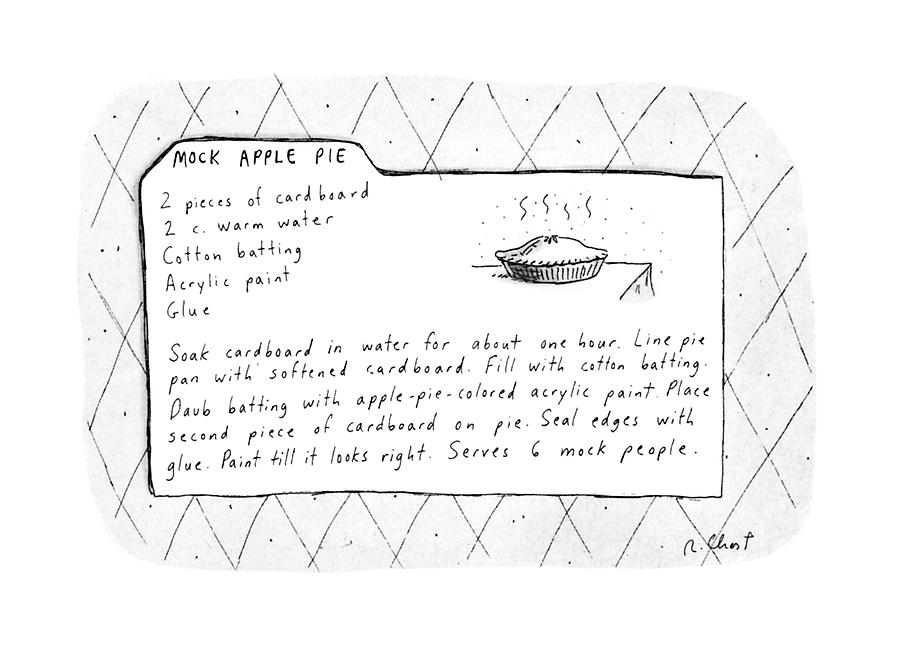 MOCK APPLE PIE
2 pieces of cardboard
2 c. warm water
Cotton batting
Acrylic paint
Glue
Soak cardboard in water for about one hour. Line pie
pan with softened cardboard. Fill with cotton batting.
Daub batting with apple-pie-colored acrylic paint. Place
second piece of cardboard on pie. Seal edges with
glue. Paint till it looks right. Serves 6 mock people.
R. Chast